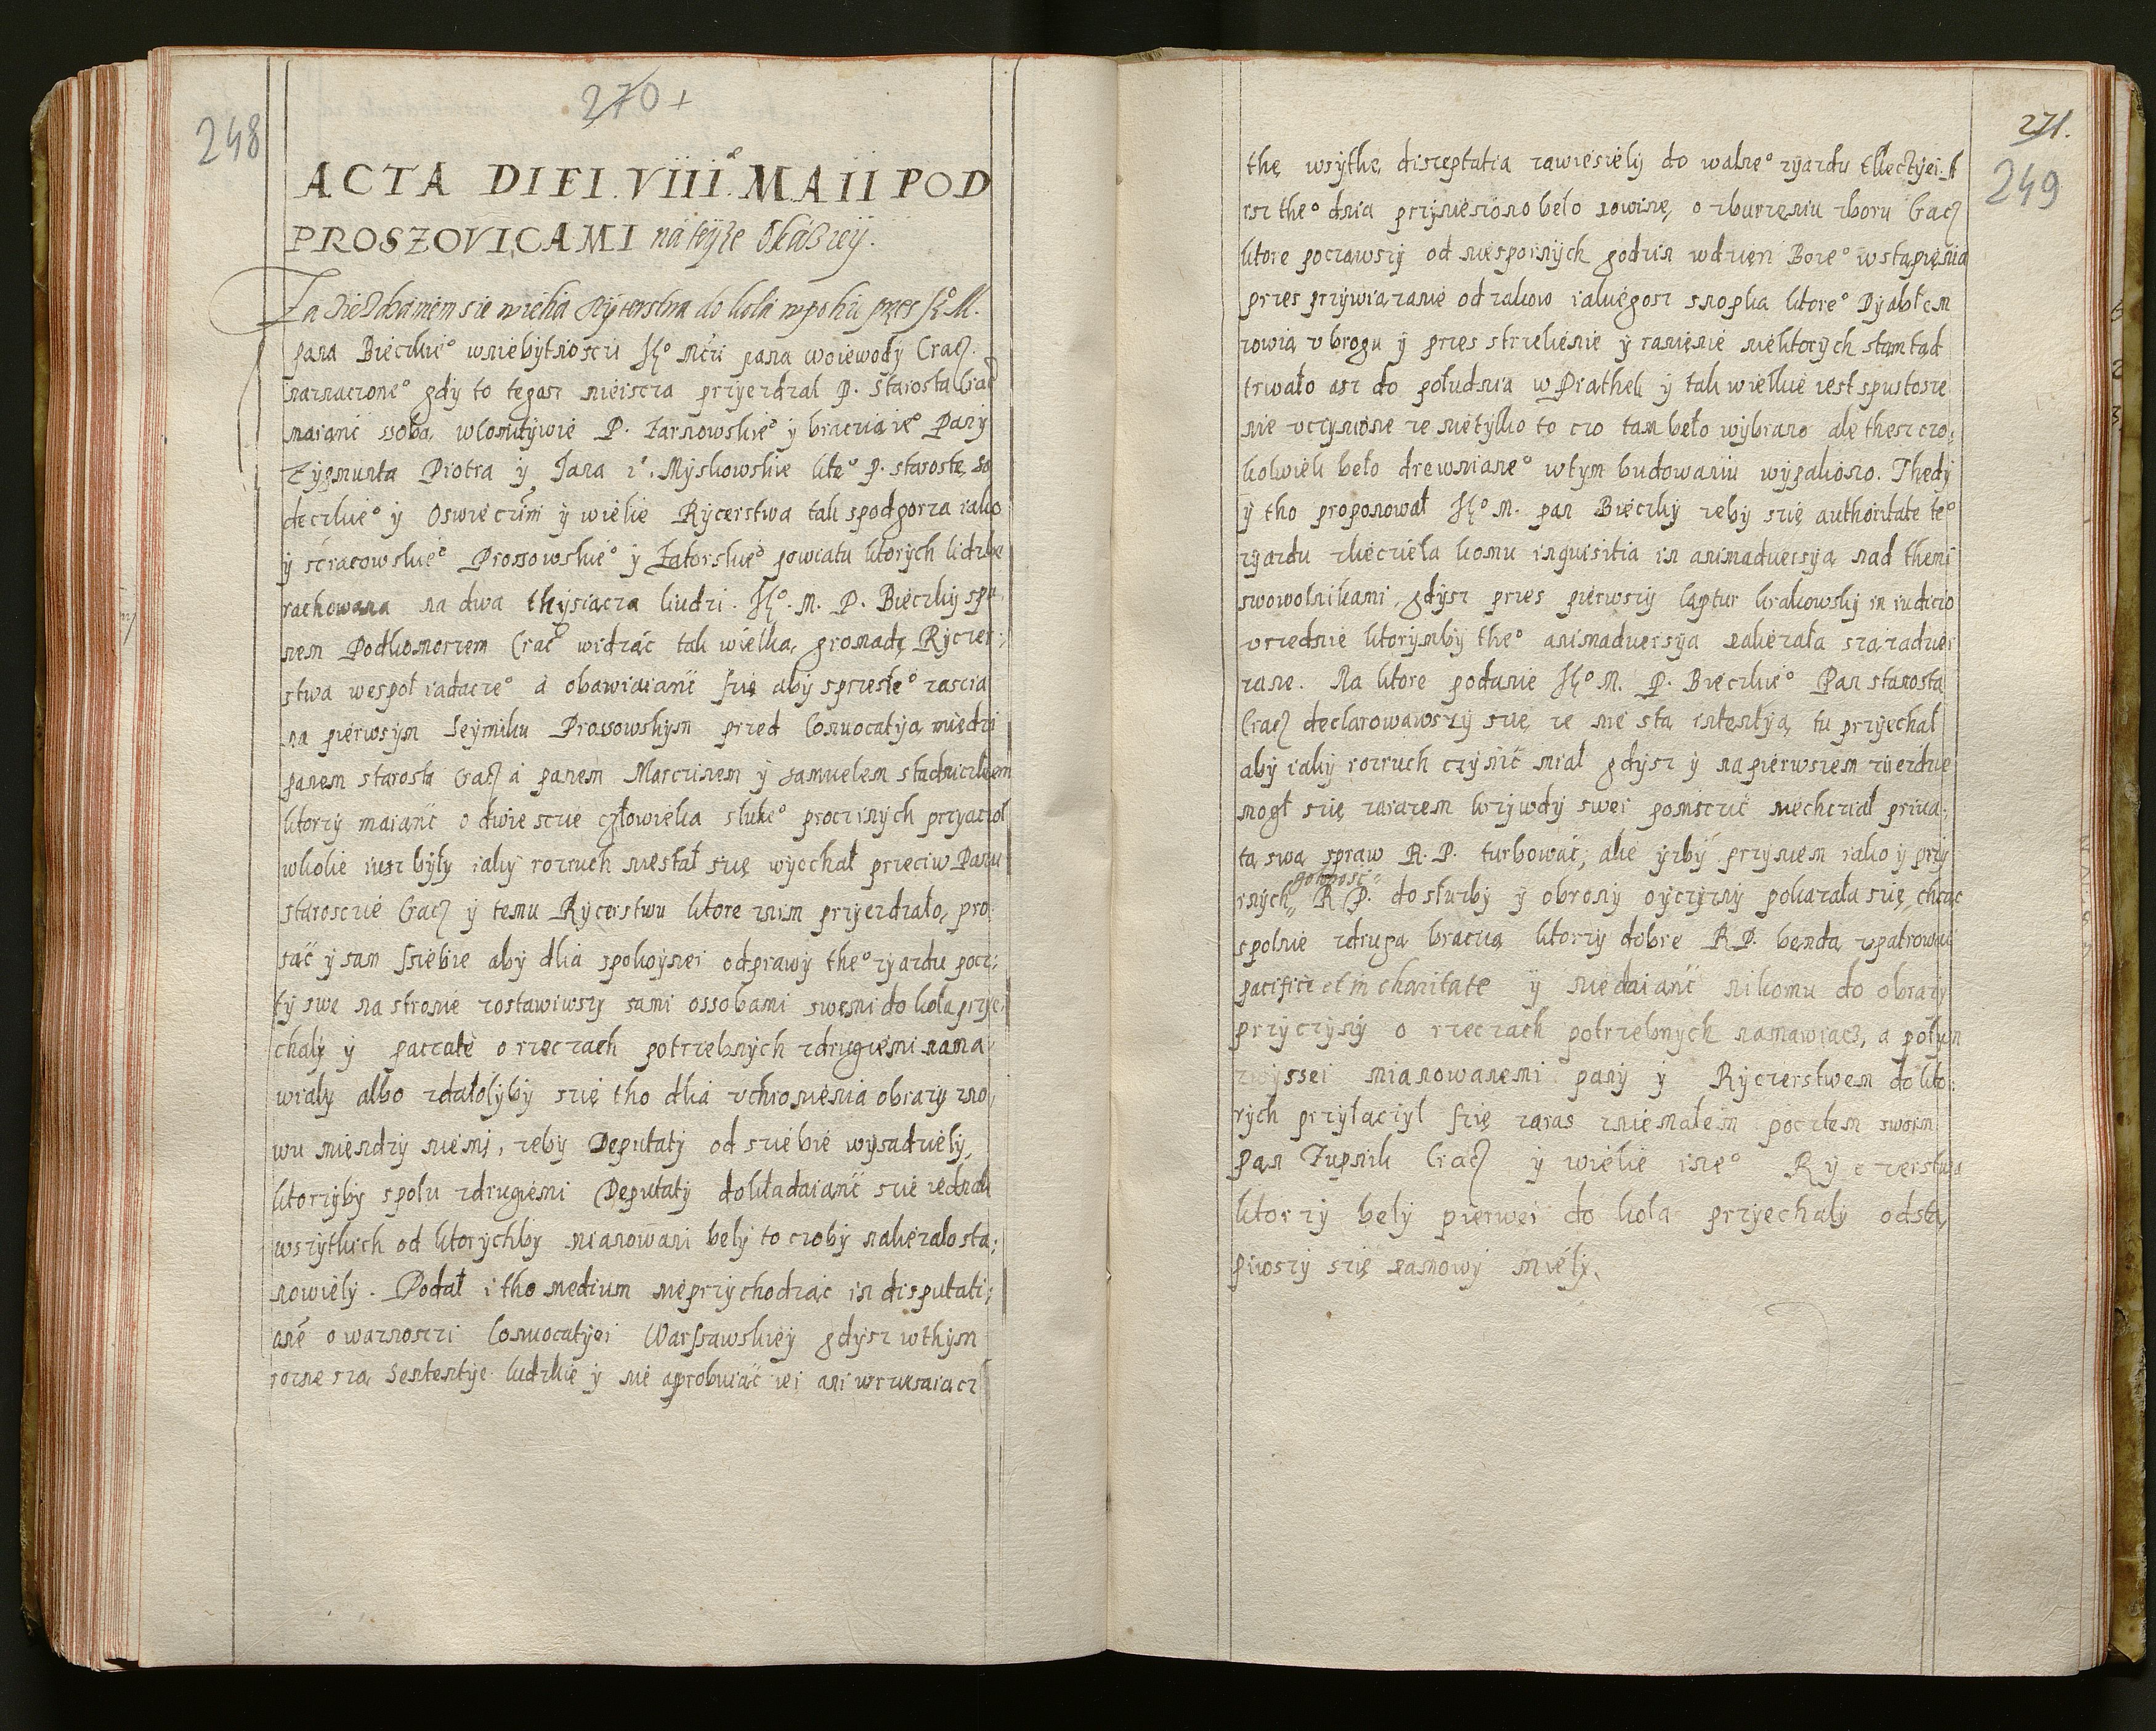 270 +
248
ACTA DIEI VIII° MAII POD
PROSZOVICAMI na teyze Okaziey.
Za ziechanim sie wielia Rycerstwa do kola w poliu przes J° M.
pana Biecrkie° w niebytnoscii J° Mci pana woiewody Crac.
narnacrone° gdy to tegasr mieisca przyerdzal P. Starosta Crac
maianc ssoba, P. Zarnowskie° y bracia ie° Pany
Zygmunta Piotra y Jana Myskowskie P. staroste, sa
decrkie° y Oswiecim y wielie Rycerstwa tak spodgorza iako
y scracowskie° Prossowskie° y Zatorskie° powiatu ktorych lidzbe
rachowana na dwa thysiacza liudzi. J°. M. P. Biecrky spa
nem Podkomorzem Crac widzac tak wielka, gromade Ryczer:
stwa wespol iadacre° a obawiaianc sie aby sprzesle° zascia
na pierwsym Seymiku Prossowskym przed Convocatya miedzi
panem starosta Crac a panem Marcrinem y Samuelem stadnicrkiem
ktorzy maianc o dwie scrie człowieka sluze° procrinych przyaciol
wkolie iusz były iaky rozruch niestał sie wyechał przeciw Panu
staroscrie Crac y temu Rycerstwu ktore znim przyezdzało, pro:
sac y sam ssiebie aby dlia spokoynei odprawy the° zyazdu pocz:
ty swe na stronie zostawiwszy sami ossobami swemi do kola przye:
chaly y paczale o rzeczach potrzebnych zdrugiemi nama:
wialy albo zdałolyby srie tho dlia uchronienia obrazy zno:
wu miendzy niemi, zeby Deputaty od sriebie wysadziely,
ktorzyby spolu zdrugiemi Deputaty dokladaianc srie
wszytkich od ktorychby mianowani bely to czoby nalezalo sta:
nowiely. Podał i tho medium nieprzychodzac in disputati:
one o waznoscri Convocatyei Warssawskiey gdysz wthym
rozne sza Sententye ludzkie y nie aprobuiac iei ani wzruszaiacz
271.
249
the wsythe, disceptatia zawiesiely do walne° zyazdu Ellectyei. A
isz the° dnia przyniesiono beło nowine, o zburzeniu zboru Crac
ktore poczawszy od niespornych godzin wdzien Boze° wstapienia
przes przywiazanie od zakow iakiegosz snopka ktore° Dyabłem
zowia v brogu y przes strzelienie y ranienie niektorych stamtad
trwało asz do południa w Piathek y tak wielkie iest spustosze
nie uczynione ze nietylko to czo tam beło wybrano ale thesz czo:
kolwiek beło drewniane° wtym budowaniu wypaliono. Thedy
y tho proponował J° M. pan Biecrky zeby srie authoritate te°
zyazdu zlieciela komu inquisitia in animadversya nad themi
swowolnikami, gdysz przes pierwszy kaptur krakowsky in iudicio
urzednie ktorymby the° animadversya nalezała sza zadzier
zane. Na ktore podanie J° M. P. Biecrkie° Pan starosta
Crac declarowawszy srie ze nie sta intentya, tu przyechal
aby iaky rozruch czynic mial gdysz y na pierwszem ziezdzie
mogł srie zarazem krzywdy swei pomscric niechciał priva:
ta swa spraw R. P. turbowac, alie przyniem iako y przy
gotowosc
inych R P. do sluzby y obrony oyczyzny pokazała srie, chcac
spolnie zdruga bracia ktorzy dobre R P. benda upatrowac
pacifice et in charitate y niedaianc nikomu do obrazy
przyczyny o rzeczach potrzebnych namawiacz, a potym
zwyssei mianowanemi pany y Ryczerstwem do kto:
rych przylaczyl sie zaras zniemałem pocztem swoim
pan Zupnik Crac y wielie ine° Ryczerstwa
ktorzy bely pierwei do kola przyechaly odsta,
piwszy srie namowy miely.